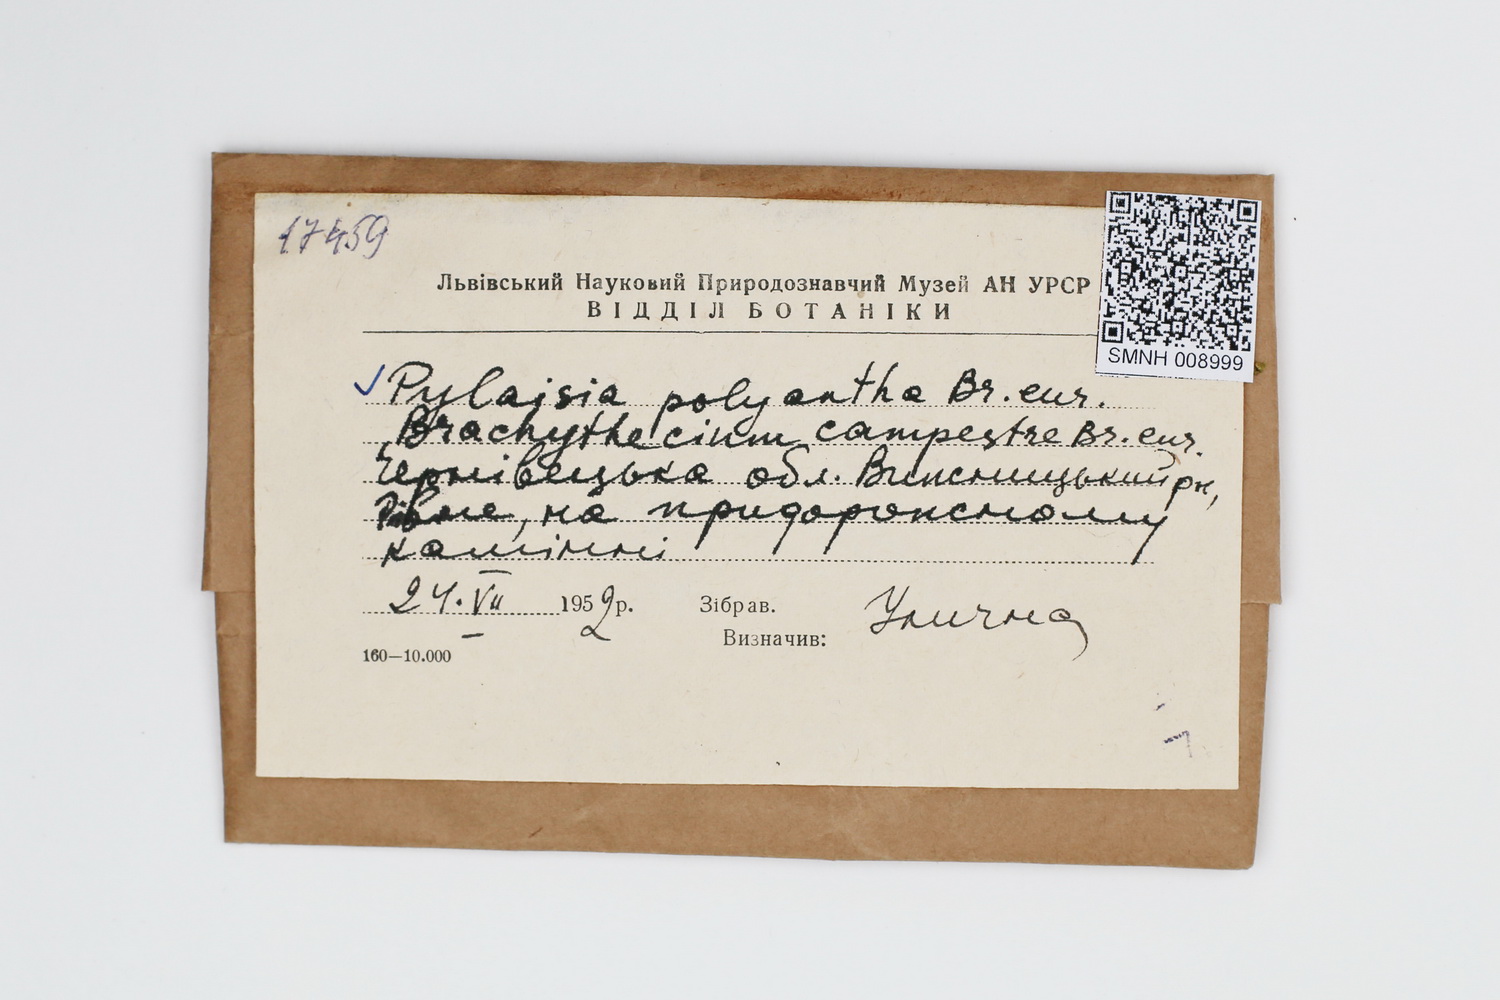 17459
Львівський Науковий Природознавчий Музей АН УРСР
ВІДДІЛ БОТАНІКИ
SMNH 008999
✓ Pylaisia polyantha Br. eur.
Brachythecium campestre Br. eur.
Чернівецька обл. Вижницький рн,
Рівне, на придорожньому
камінні
24.VII 1952 р.
Зібрав.
Визначив:
Улична
160—10.000